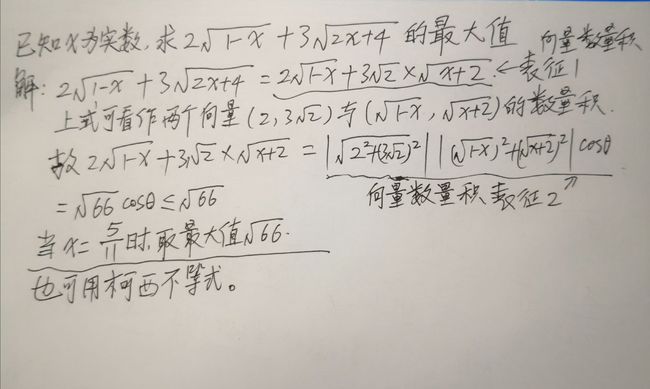 已知x为实数,求2√1-x + 3√2x+4 的最大值 向量数量积
解: 2√1-x + 3√2x+4 = 2√1-x + 3√2 × √x+2 ← 表征1
上式可看作两个向量(2, 3√2)与(√1-x, √x+2)的数量积.
故 2√1-x + 3√2 × √x+2 = |√2²+(3√2)²| |√(√1-x)²+(√x+2)²| cosθ
= √66 cosθ ≤ √66 向量数量积表征2
当x= 5/11 时,取最大值√66.
也可用柯西不等式。